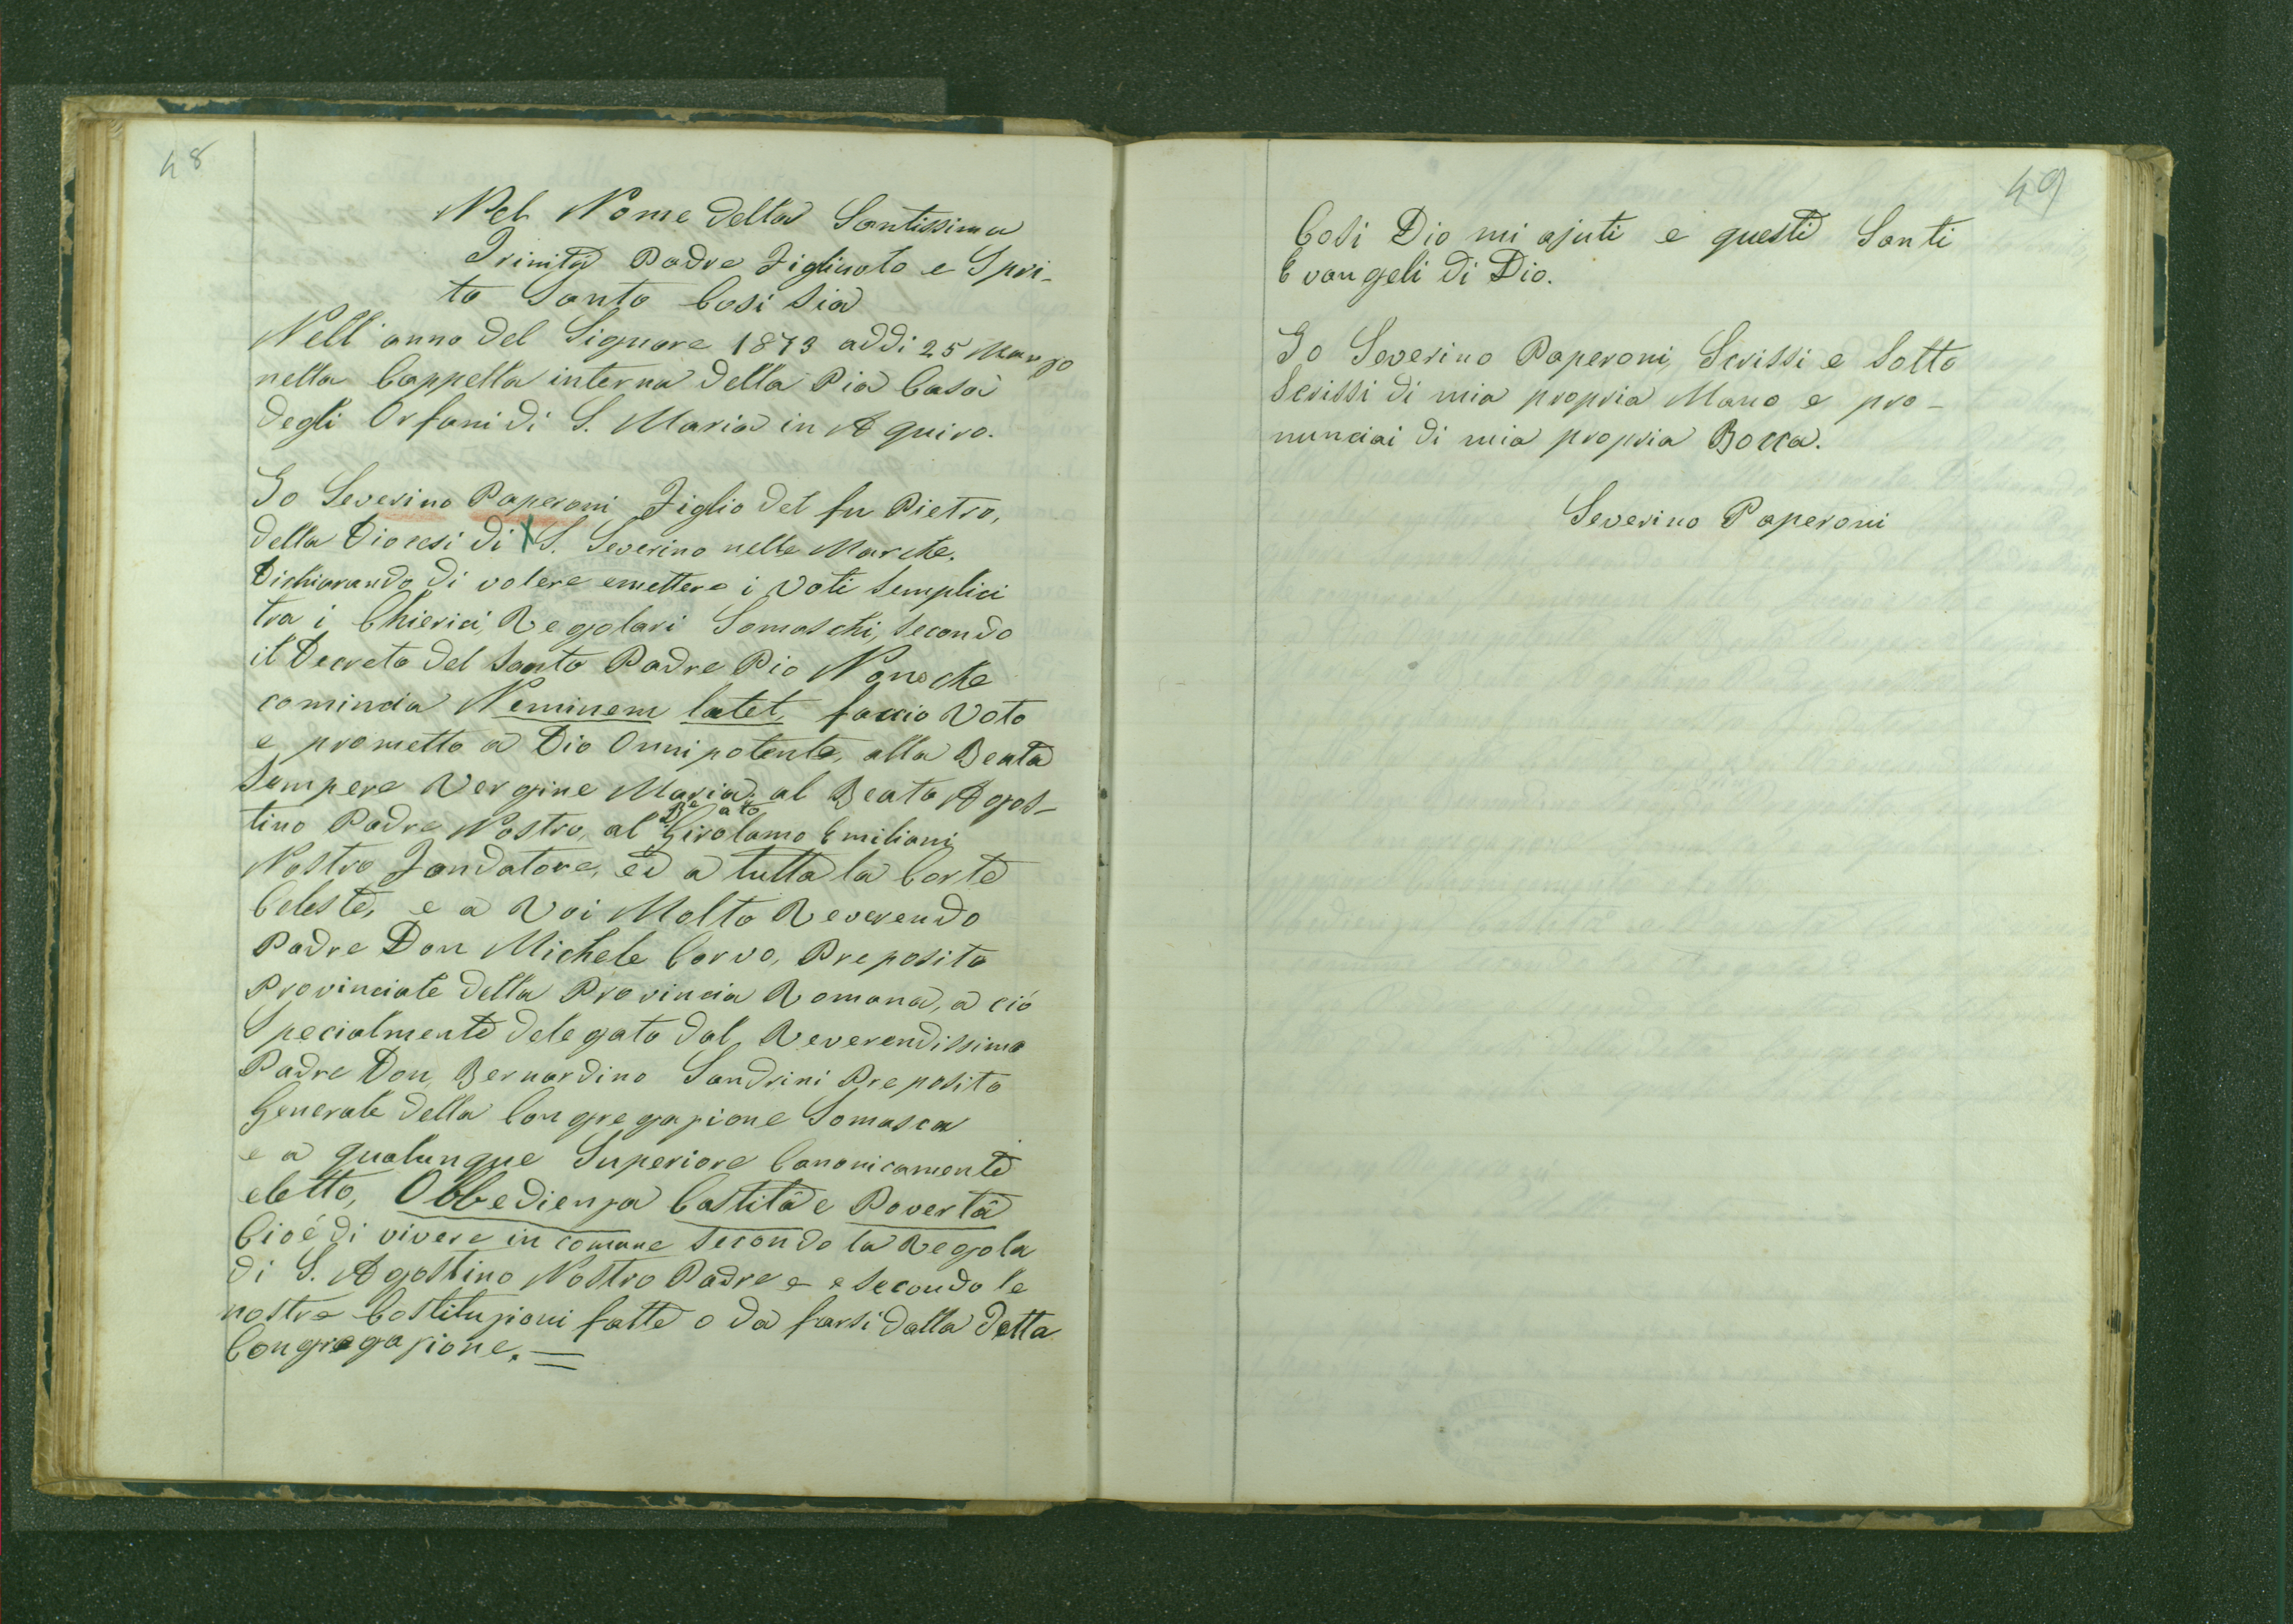 48
Nel Nome della Santissima
Trinità Padre Figliuolo e Spiri-
to Santo Così sia
Nell' anno del Signore 1873 addi 25 Marzo
nella Cappella interna della Pia Casa
degli Orfani di S. Maria in Aquiro.
Io Severino Paperoni Figlio del fu Pietro,
della Diocesi di X S. Severino nelle Marche.
Dichiarando di volere emettere i Voti semplici
tra i Chierici Regolari Somaschi, secondo
il Decreto del Santo Padre Pio Nono che
comincia Neminem latet, faccio Voto
e prometto a Dio Onnipotente, alla Beata
Sempere Vergine Maria, al Beato Agos-
tino Padre Nostro, al Beato Girolamo Emiliani
Nostro Fondatore, ed a tutta la Corte
Celeste, e a Voi Molto Reverendo
Padre Don Michele Corvo, Preposito
Provinciale della Provincia Romana, a ciò
Specialmente delegato dal Reverendissimo
Padre Don Bernardino Sandrini Preposito
Generale della Congregazione Somasca
e a qualunque Superiore Canonicamente
eletto, Obbedienza Castità e Povertà
Cioè di vivere in comune secondo la Regola
di S. Agostino Nostro Padre e e secondo le
nostre Costituzioni fatte o da farsi dalla detta
Congregazione.=
49
Cosi Dio mi ajuti e questi Santi
Evangeli di Dio.
Io Severino Paperoni, Scrissi e Sotto
Scrissi di mia propria Mano e pro-
nunciai di mia propria Bocca.
Severino Paperoni